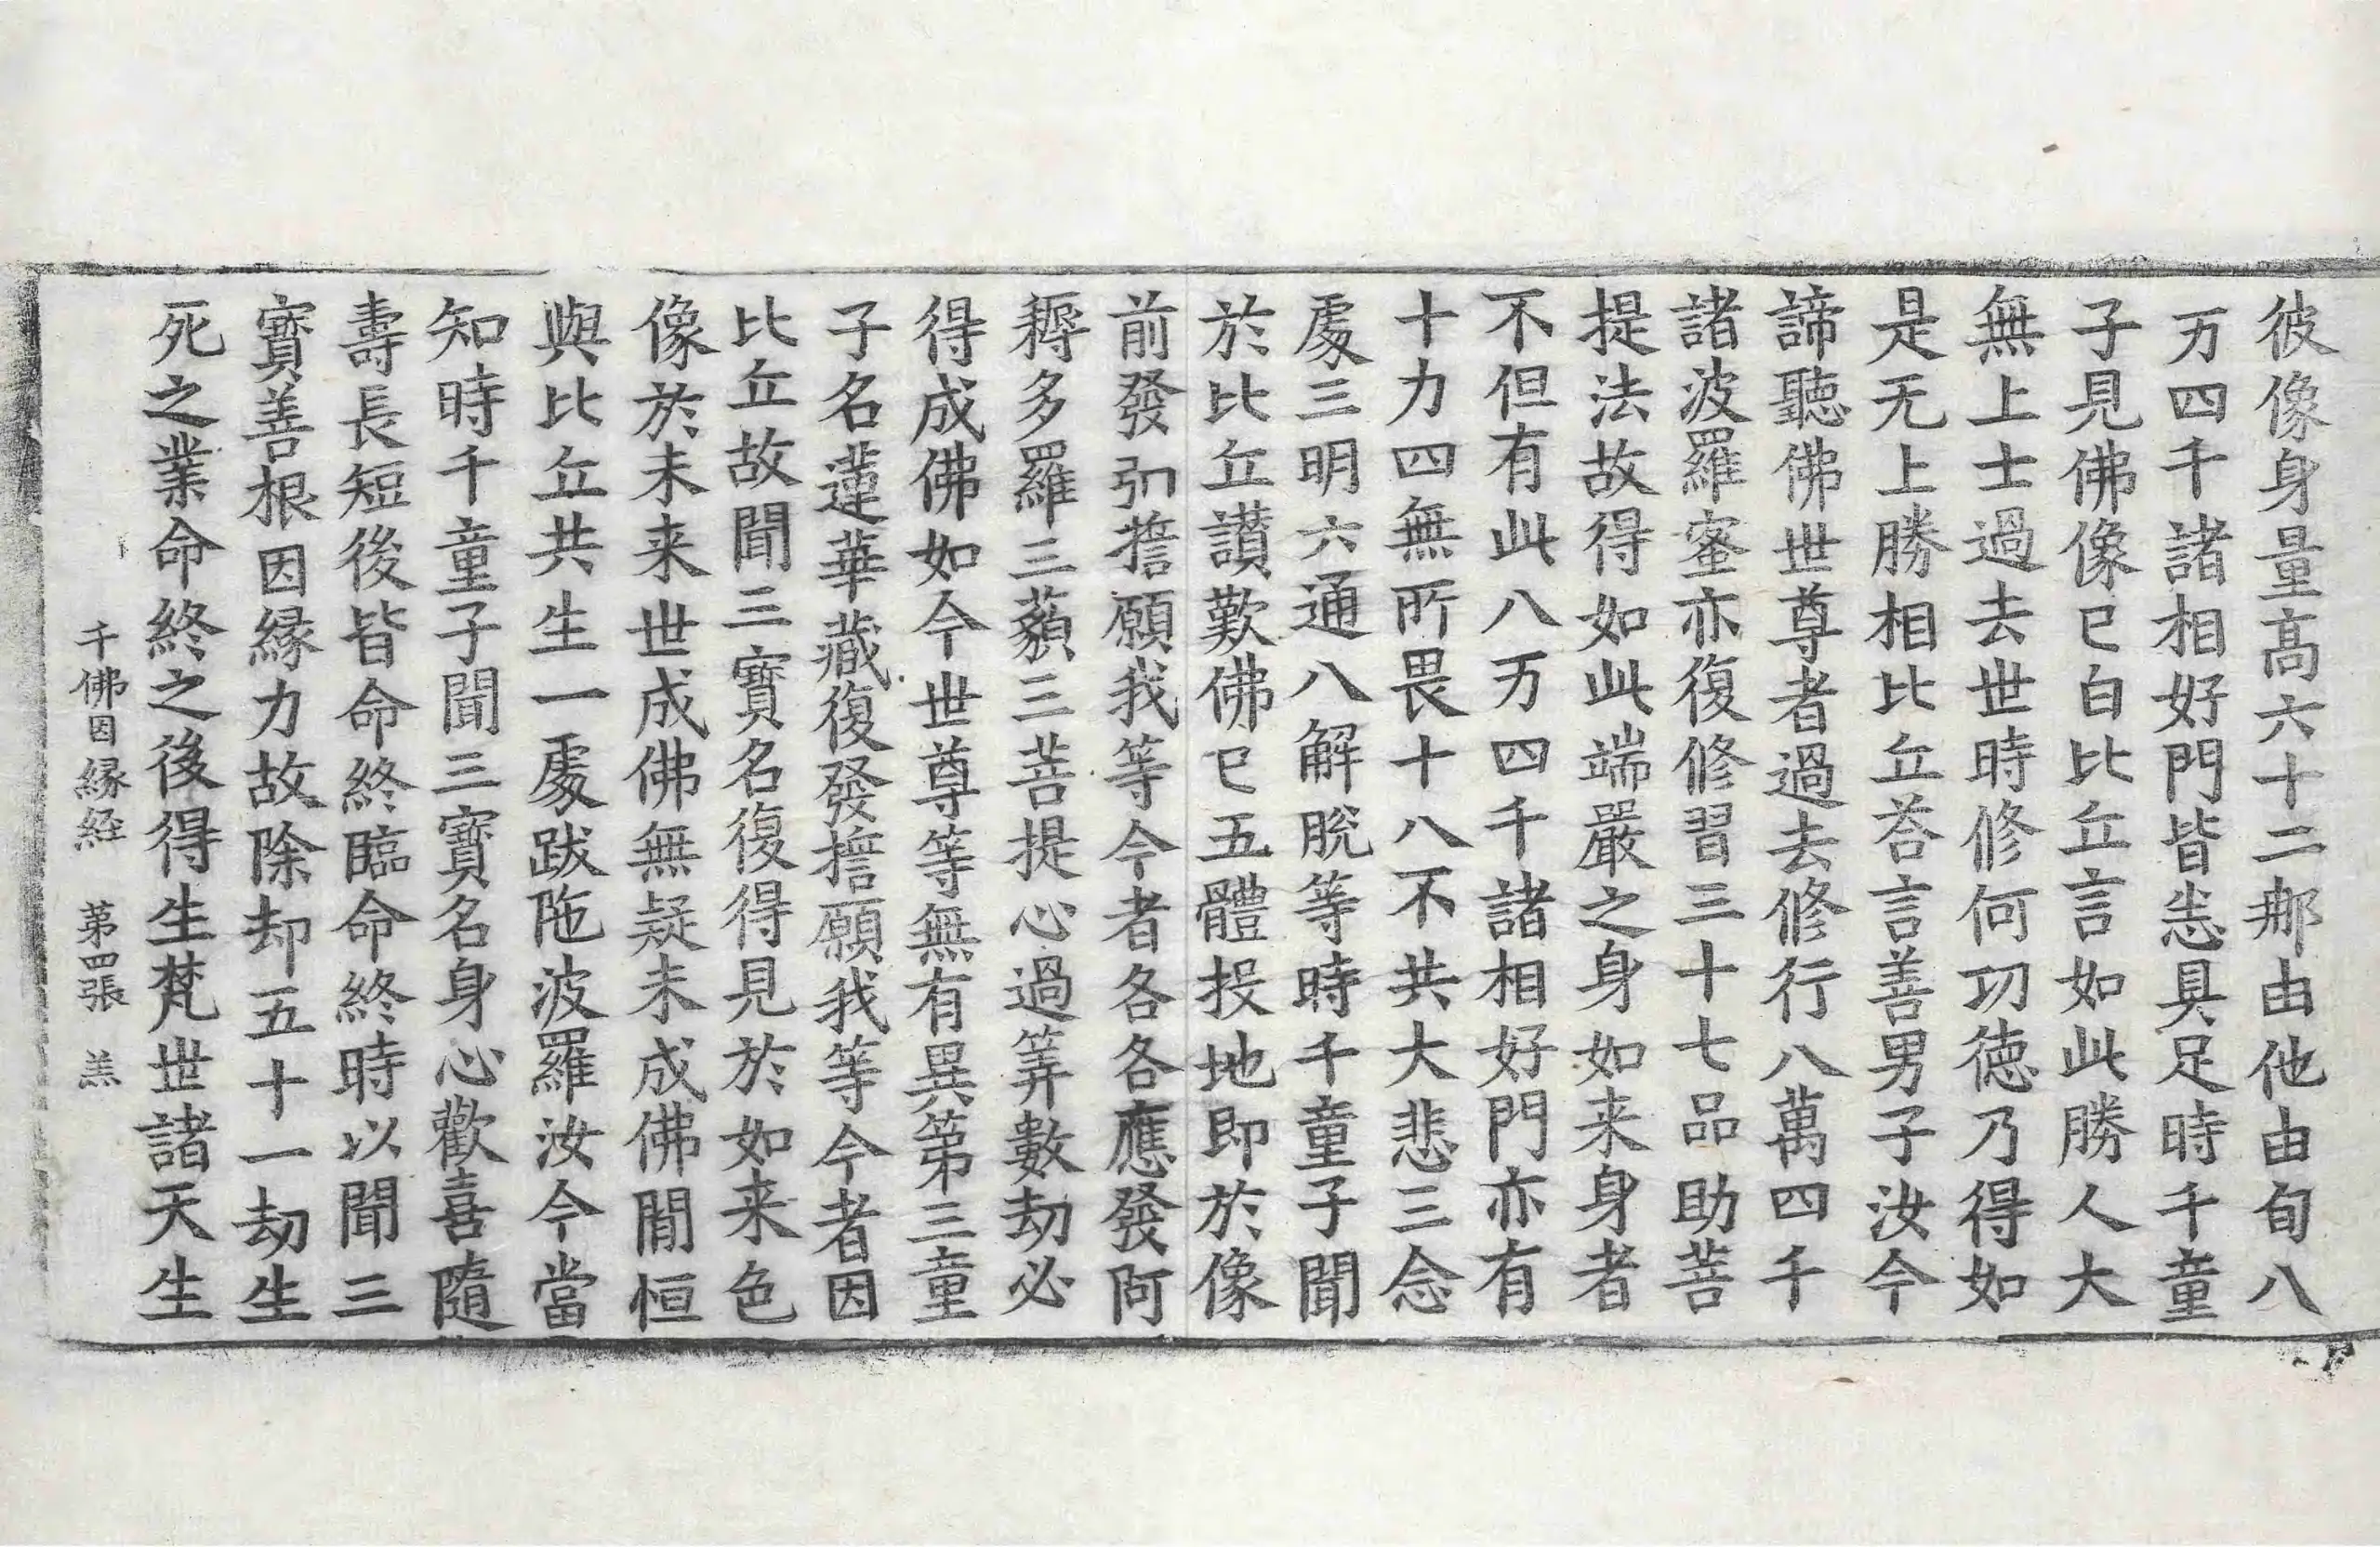 彼像身量高六十二那由他由旬八
万四千諸相好門皆悉具足時千童
子見佛像已白比丘言如此勝人大
無上士過去世時修何功徳乃得如
是无上勝相比丘荅言善男子汝今
諦聽佛世尊者過去修行八萬四千
諸波羅蜜亦復修習三十七品助菩
提法故得如此端嚴之身如来身者
不但有此八万四千諸相好門亦有
十力四無所畏十八不共大悲三念
處三明六通八解脫等時千童子聞
於比丘讃歎佛已五體投地即於像
前發弘擔願我等今者各各應發阿
耨多羅三藐三菩提心過筭數劫必
得成佛如今世尊等無有異第三童
子名蓮華藏復發擔願我等今者因
比丘故聞三寶名復得見於如来色
像於未来世成佛無疑未成佛閒恒
與比丘共生一處跋陁波羅汝今當
知時千童子聞三寶名身心歡喜隨
壽長短後皆命終臨命終時以聞三
寶善根因緣力故除却五十一劫生
死之業命終之後得生梵世諸天生
千佛因緣経 第四張 羔